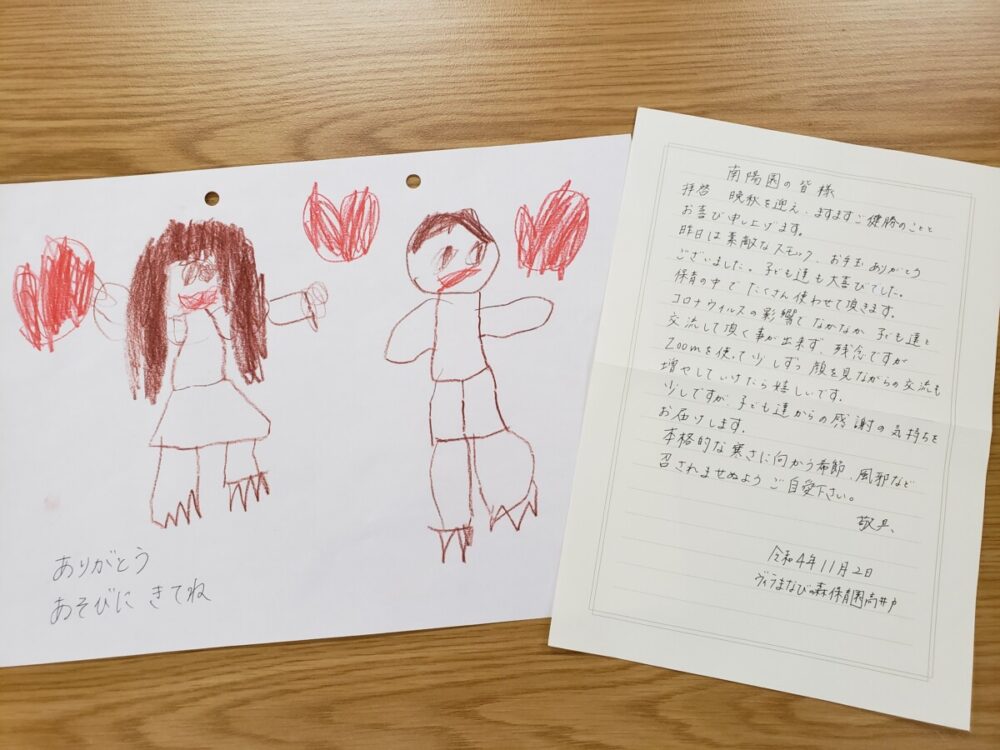 ありがとう
あそびに きてね
南陽園の皆様
拝啓 晩秋を迎え、ますますご健勝のことと
お喜び申し上げます。
昨日は素敵なスモック、お手玉ありがとう
ございました。子ども達も大喜びでした。
保育の中でたくさん使わせて頂きます。
コロナウイルスの影響でなかなか子ども達と
交流して頂く事が出来ず、残念ですが
Zoomを使って少しずつ顔を見ながらの交流も
増やしていけたら嬉しいです。
少しですが、子ども達からの感謝の気持ちを
お届けします。
本格的な寒さに向かう季節、風邪など
召されませぬようご自愛下さい。
敬具
令和4年11月2日
ヴィラまなびの森保育園高井戸